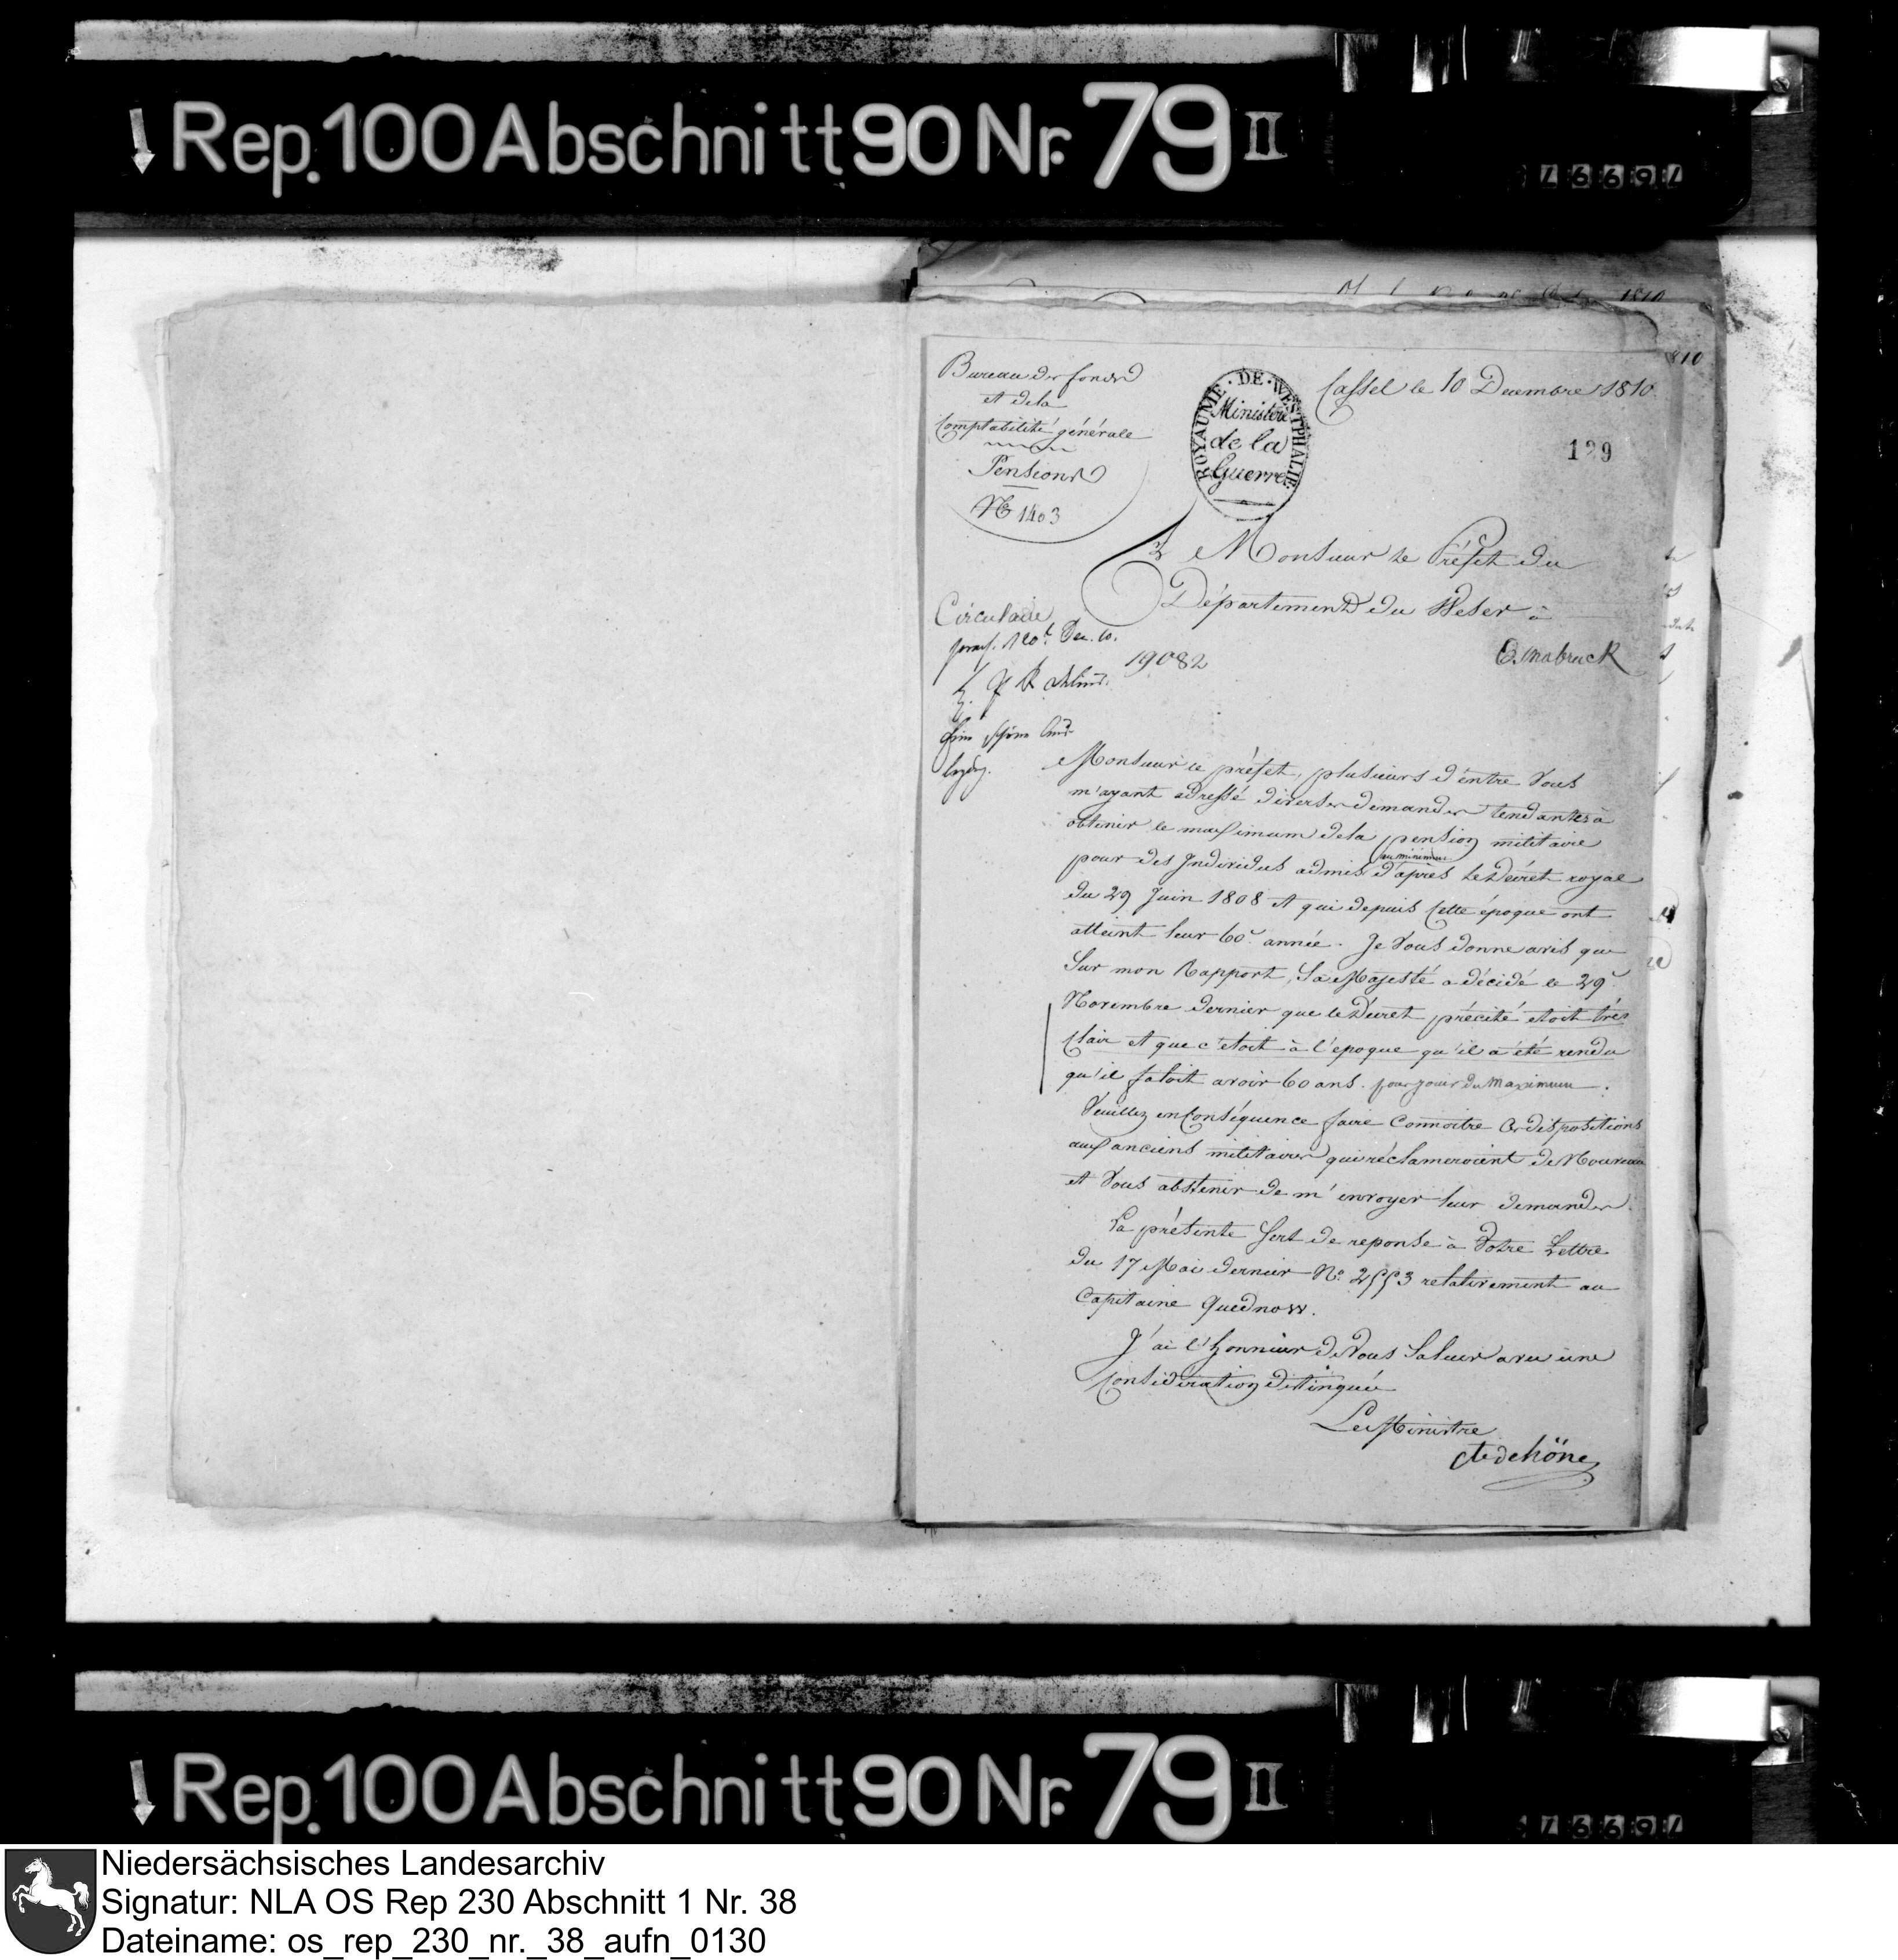 Rep. 100 Abschnitt 90 Nr. 79 II
76697
1810
810
Bureau des fonds
et dela
Comptabilité générale
Pensions
No 1403
ROYAUME · DE · WESTPHALIE
Ministère
de la
Guerre
Cassel le 10 Decembre 1810
129
A Monsieur le Préfet du
Département du Weser à
Osnabruck
Circulaire
19082
Monsieur le préfet, plusieurs d'entre Vous
m'ayant adressé diverses demandes tendantes à
obtenir le maximum dela pension militaire
pour des Individus admis au minimum d'après le Décret royal
du 29 Juin 1808 et qui depuis Cette époque ont
atteint leur 60e année. Je Vous donne avis que
Sur mon Rapport, Sa Majesté a décidé le 29
Novembre dernier que le Décret précité etoit très
Clair et que c'etoit à l'epoque qu'il a été rendu
qu'il faloit avoir 60 ans pour jouir du Maximum.
Veuillez en Conséquence faire Connoitre Ces dispositions
aux anciens militaires qui réclameroient de Nouveau
et Vous abstenir de m'envoyer leur demandes.
La présente Sert de reponse à Votre Lettre
du 17 Mai dernier No. 2553 relativement au
Capitaine Quednow.
J'ai l'honneur de Vous Saluer avec une
Considération distinguée
Le Ministre
Cte de höne
Rep. 100 Abschnitt 90 Nr. 79 II
76697
Niedersächsisches Landesarchiv
Signatur: NLA OS Rep 230 Abschnitt 1 Nr. 38
Dateiname: os_rep_230_nr._38_aufn_0130